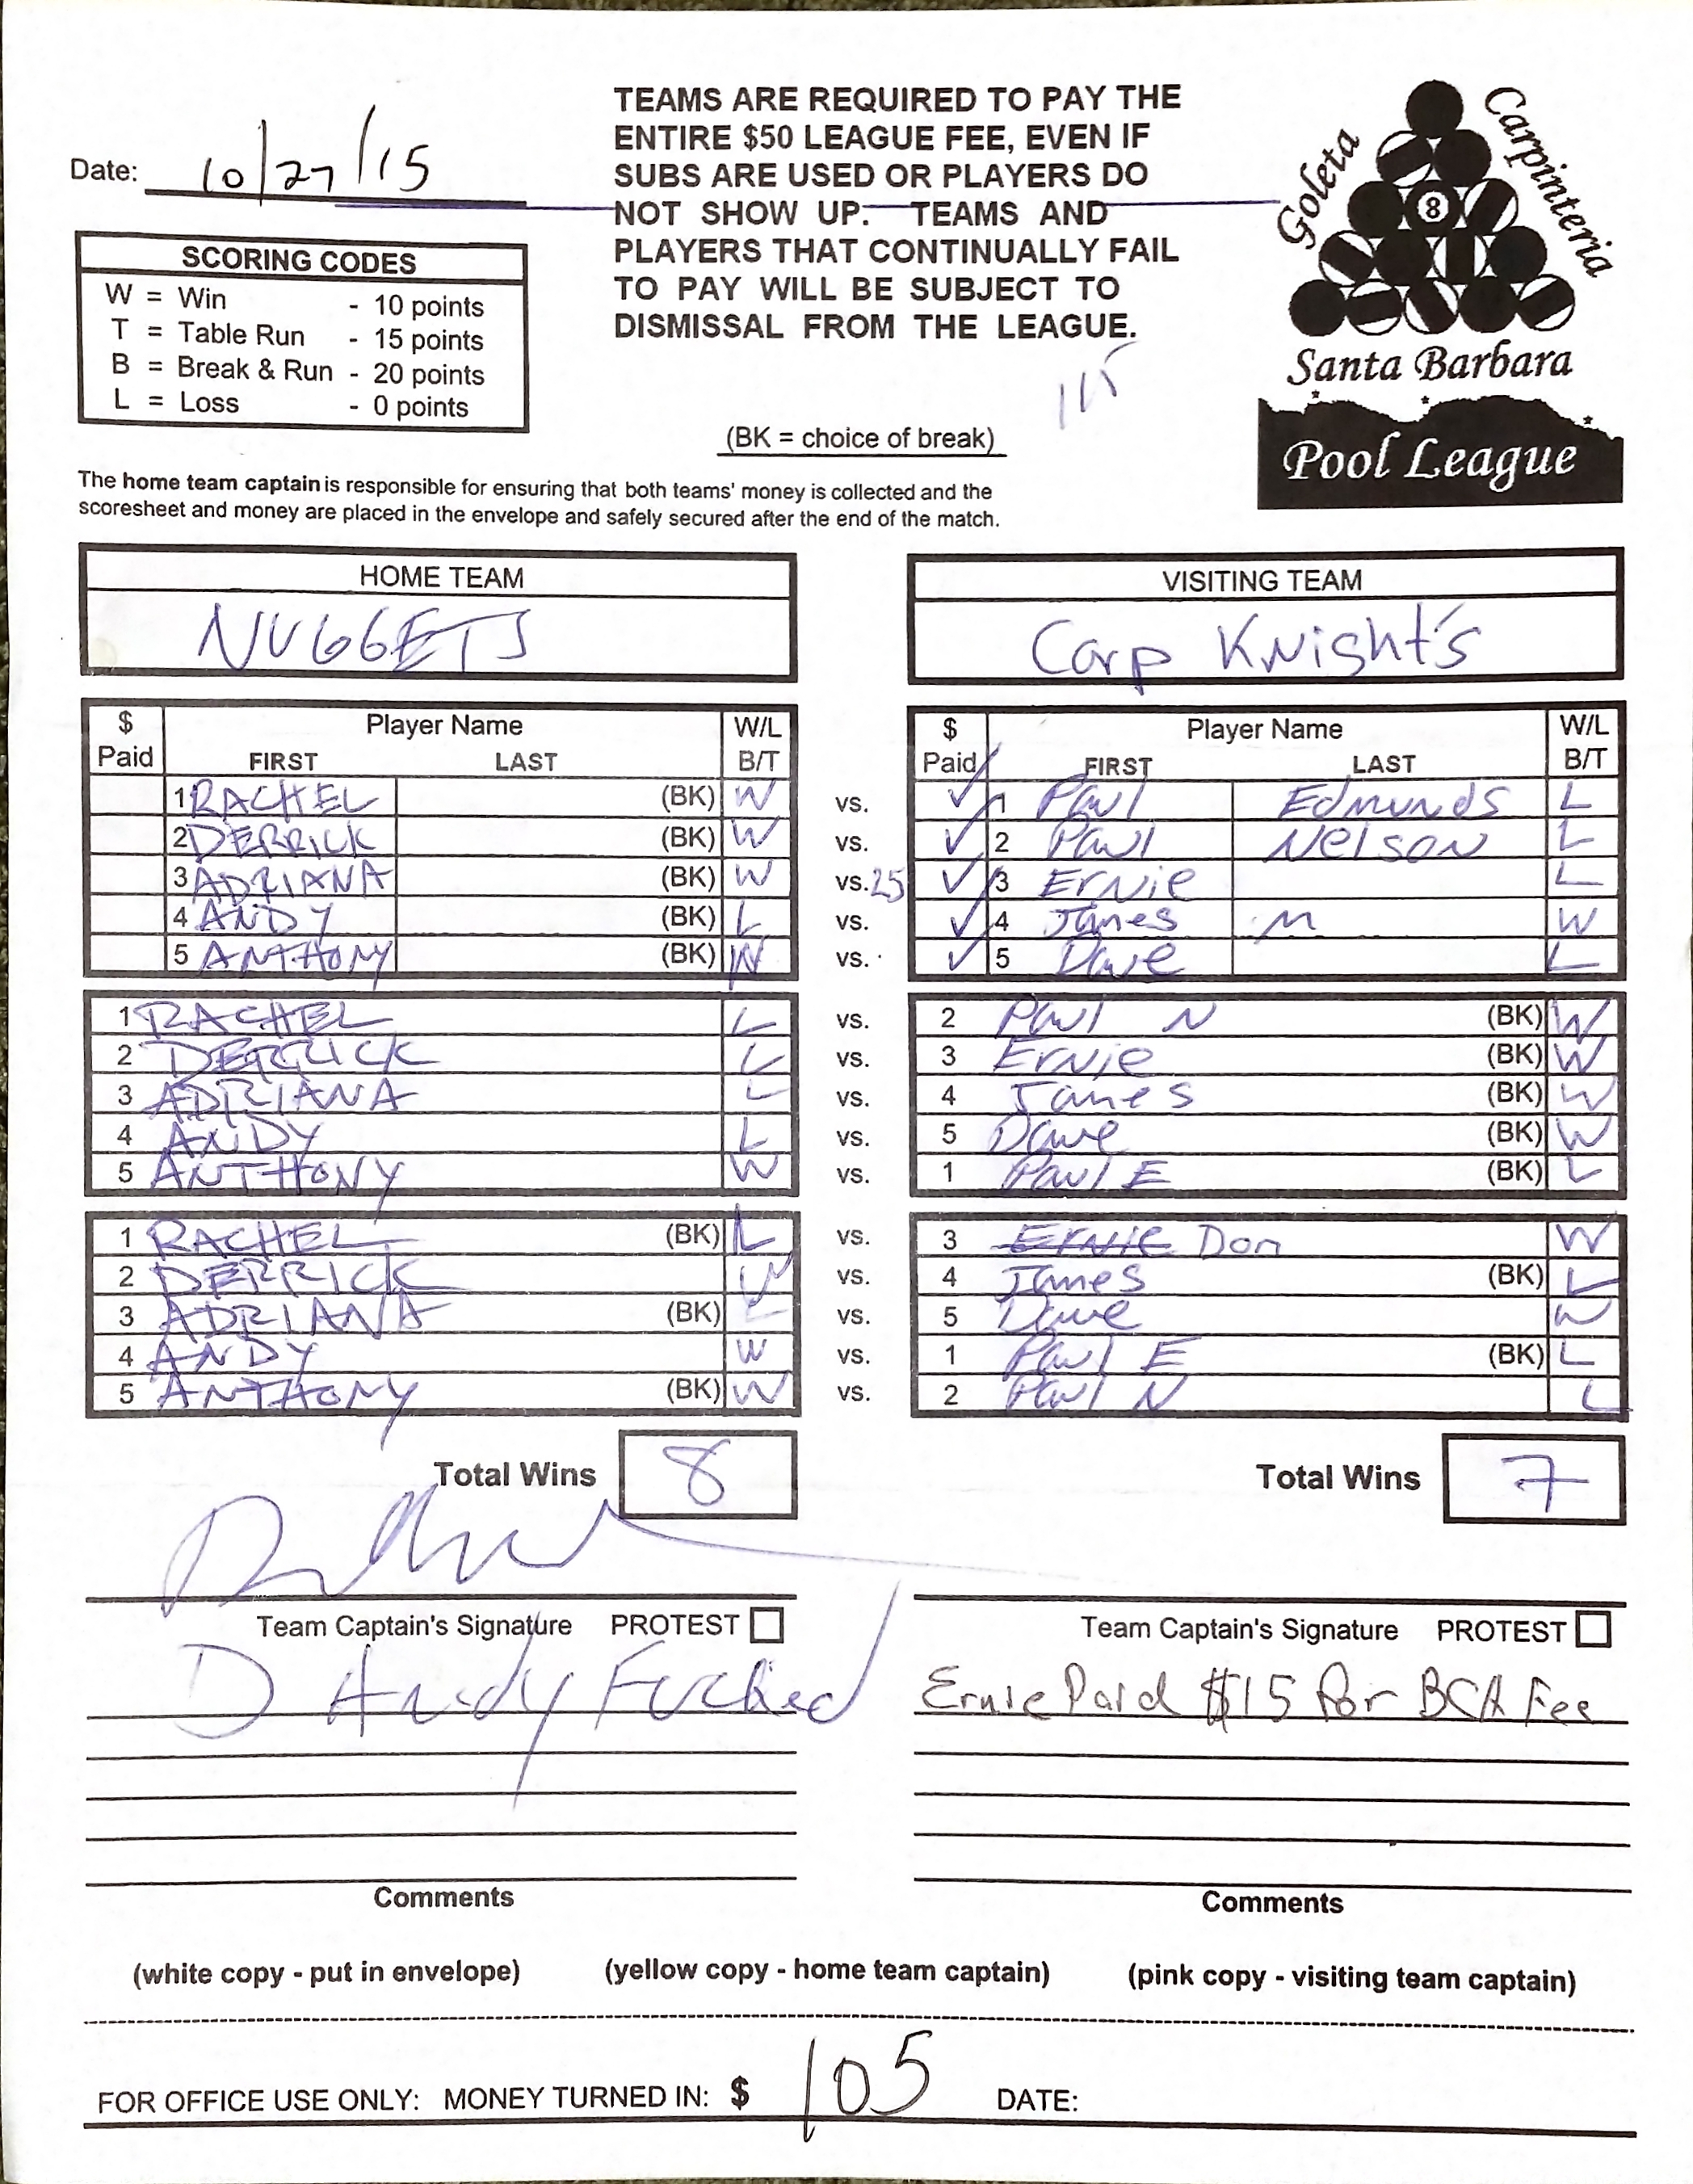 TEAMS ARE REQUIRED TO PAY THE
ENTIRE $50 LEAGUE FEE, EVEN IF
SUBS ARE USED OR PLAYERS DO
NOT SHOW UP. TEAMS AND
PLAYERS THAT CONTINUALLY FAIL
TO PAY WILL BE SUBJECT TO
DISMISSAL FROM THE LEAGUE.
Date: 10/27/15
Goleta
Carpinteria
8
Santa Barbara
Pool League
SCORING CODES
W = Win - 10 points
T = Table Run - 15 points
B = Break & Run - 20 points
L = Loss - 0 points
115
(BK = choice of break)
The home team captain is responsible for ensuring that both teams' money is collected and the
scoresheet and money are placed in the envelope and safely secured after the end of the match.
HOME TEAM
NUGGETS
VISITING TEAM
Carp Knight's
$ Player Name W/L
Paid FIRST LAST B/T
$ Player Name W/L
Paid FIRST LAST B/T
1 RACHEL (BK) W vs. ✓ 1 Paul Edmunds L
2 DERRICK (BK) W vs. ✓ 2 Paul Nelson L
3 ADRIANA (BK) W vs. 25 ✓ 3 Ernie L
4 ANDY (BK) L vs. ✓ 4 James M W
5 ANTHONY (BK) W vs. ✓ 5 Dave L
1 RACHEL L vs. 2 Paul N (BK) W
2 DERRICK L vs. 3 Ernie (BK) W
3 ADRIANA L vs. 4 James (BK) W
4 ANDY L vs. 5 Dave (BK) W
5 ANTHONY W vs. 1 Paul E (BK) L
1 RACHEL (BK) L vs. 3 Ernie Don W
2 DERRICK W vs. 4 James (BK) L
3 ADRIANA (BK) L vs. 5 Dave W
4 ANDY W vs. 1 Paul E (BK) L
5 ANTHONY (BK) W vs. 2 Paul N L
Total Wins 8
Total Wins 7
Team Captain's Signature PROTEST
Team Captain's Signature PROTEST
D Andy Fucked
Ernie Paid $15 for BCA Fee
Comments
Comments
(white copy - put in envelope) (yellow copy - home team captain) (pink copy - visiting team captain)
FOR OFFICE USE ONLY: MONEY TURNED IN: $ 105 DATE: